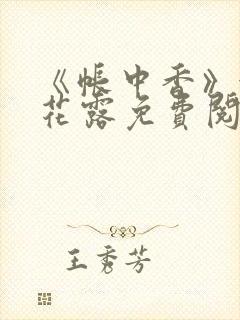 《帐中香》
花露免費閱
王秀芳